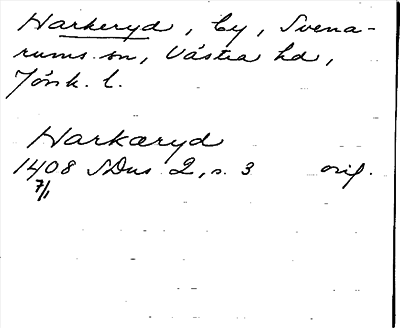 Harkeryd, by, Svena-
rums sn, Västra hd,
Jönk. l.
Harkæryd
1408 SDns 2, s. 3 orig.
7/1